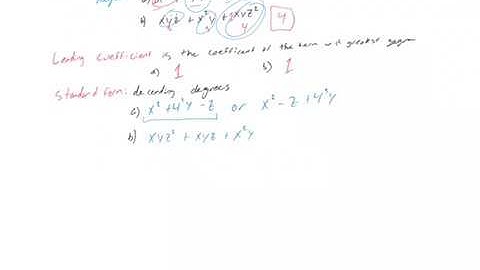 b) xyz + x²y + xyz² 4
3 3 4
Leading coefficient is the coefficient of the term with greatest degree
a) 1 b) 1
Standard form: decending degrees
a) x² + 4³y - z or x² - z + 4³y
b) xyz² + xyz + x²y